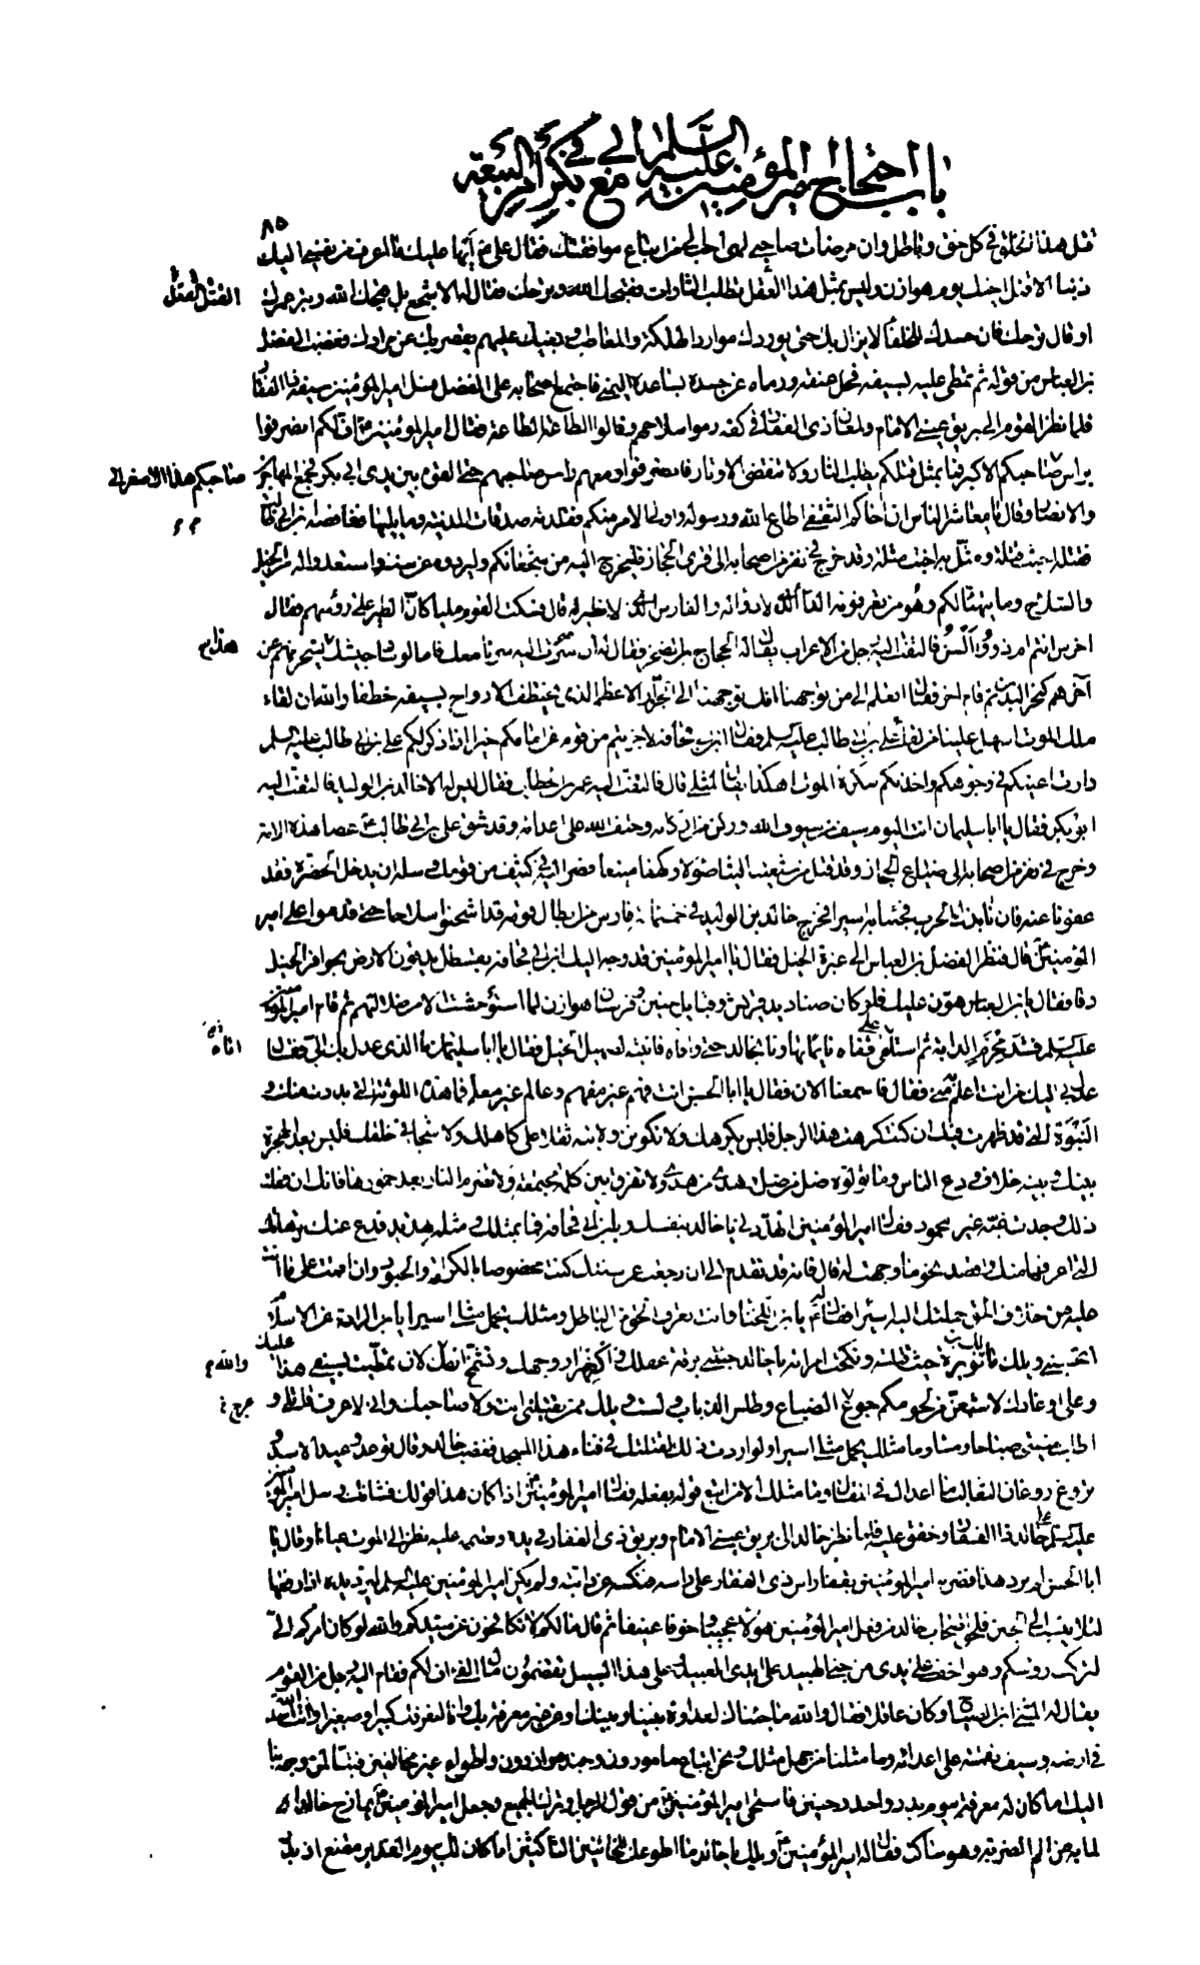 باب احتجاج امير المؤمنين عليه السلام على ابي بكر في امر البيعة
٨٥
قتل هذا نخلق في كل حق وباطل وان مرضات صاحبي لهي احب الي من اتباع موافقتك فقال علي
ذنبا الا قتل اخيك يوم هوازن وليس بمثل هذا العقل يطلب الثارات فقبحك الله
او قال فان حسدك للخلفاء لا يزال بك حتى يوردك موارد الهلكة والمعاطب وبغيك عليهم يقصر بك عن مرادك فغضب الفضل
بن العباس من قوله ثم تمطى عليه بسيفه فحل عنقه ورماه عن جسده بساعده اليمنى فاجتمع اصحابه على الفضل فسل امير المؤمنين سيفه ذا الفقار
فلما نظر القوم الى بريق عيني الامام ولمعان ذي الفقار في كفه رموا سلاحهم وقالوا الطاعة الطاعة فقال امير المؤمنين اف لكم انصرفوا
براس صاحبكم الاكبر فما بمثل قتلكم يطلب الثار ولا تنقضي الاوتار فانصرفوا ومعهم راس صاحبهم حتى القوه بين يدي ابي بكر فجمع المهاجرين
والانصار وقال يا معاشر الناس ان اخاكم الثقفي اطاع الله ورسوله واولي الامر منكم فقلدته صدقات المدينة وما يليها فغافصه ابن ابي طالب
فقتله اخبث قتلة ومثل به اخبث مثلة وقد خرج في نفر من اصحابه الى قرى الحجاز فليخرج اليه من شجعانكم وليردوه عن سنته واستعدوا له من الخيل
والسلاح وما يتهيا لكم وهو من تعرفونه الداء الذي لا دواء له والفارس الذي لا نظير له قال فسكت القوم مليا كان الطير على رؤسهم فقال
اخرس انتم ام ذوو السن فالتفت اليه رجل من الاعراب يقال له الحجاج بن الصخر فقال له ان سرت اليه سرنا معك فاما لو سار جيشك لينحرنهم عن
اخرهم كنحر البدن ثم قام اخر فقال اتعلم الى من توجهنا انك توجهنا الى الجزار الاعظم الذي يختطف الارواح بسيفه خطفا والله ان لقاء
ملك الموت اسهل علينا من لقاء علي بن ابي طالب عليه السلم فقال ابن ابي قحافة لا جزيتم من قوم عن امامكم خيرا اذا ذكر لكم علي بن ابي طالب عليه السلم
دارت اعينكم في وجوهكم واخذتكم سكرة الموت اهكذا يقال لمثلي قال فالتفت اليه عمر بن الخطاب فقال ليس له الا خالد بن الوليد فالتفت اليه
ابو بكر فقال يا ابا سليمان انت اليوم سيف من سيوف الله وركن من اركانه وحتف الله على اعدائه وقد شق علي بن ابي طالب عصا هذه الامة
وخرج في نفر من اصحابه الى ضياع الحجاز وقد قتل من شيعتنا ليثا صؤلا وكهفا منيعا فصر اليه في كثيف من قومك وسله ان يدخل الحضرة فقد
عفونا عنه فان نابذك الحرب فجئنا به اسيرا فخرج خالد بن الوليد في خمسمائة فارس من ابطال قومه قد اشحنوا سلاحا حتى قدموا على امير
المؤمنين قال فنظر الفضل بن العباس الى غبرة الخيل فقال يا امير المؤمنين قد وجه اليك ابن ابي قحافة بقسطل يدقون الارض بحوافر الخيل
دقا فقال يا ابن العباس هون عليك فلو كان صناديد قريش وقبايل حنين وفرسان هوازن لما استوحشت الا من ضلالتهم ثم قام امير المؤمنين
عليه السلم فشد محزم الدابة ثم استلقى على قفاه نائما تهاونا بخالد حتى وافاه فانتبه لصهيل الخيل فقال يا ابا سليمان ما الذي عدل بك الي فقال
عدل بي اليك من انت اعلم به مني فقال فاسمعنا الان فقال يا ابا الحسن انت فهم غير مفهم وعالم غير معلم فما هذه اللوثة التي بدرت منك و
النبوة التي قد ظهرت فيك ان كنت كرهت هذا الرجل فليس يكرهك ولا تكونن ولايته ثقلا على كاهلك ولا شجا في حلقك فليس بعد الهجرة
بينك وبينه خلاف ودع الناس وما تولوه ضل من ضل وهدي من هدي ولا تفرق بين كلمة مجتمعة ولا تضرم النار بعد خمودها فانك ان فعلت
ذلك وجدت غبه غير محمود فقال امير المؤمنين اتهددني يا خالد بنفسك وبابن ابي قحافة فما بمثلك ومثله تهديد فدع عنك ترهاتك
التي اعرفها منك واقصد نحو ما وجهت له قال فانه قد تقدم الي ان رجعت عن سننك كنت مخصوصا بالكرامة والحبو وان اقمت على ما انت
عليه من خلاف الحق حملتك اليه اسيرا فقال له يا بن اللخنا وانت تعرف الحق من الباطل ومثلك يحمل مثلي اسيرا يا بن الرادة عن الاسلام
اتحسبني ويلك مالك بن نويرة حيث قتلته ونكحت امراته يا خالد جئتني برقة عقلك
لولا وعلى اوغادك لاشبعن من لحومكم جوع الضباع وطلس الذباب ولست ويلك ممن يقتلني انت ولا صاحبك واني لاعرف قاتلي و
اطلب منيتي صباحا ومساء وما مثلك يحمل مثلي اسيرا ولو اردت ذلك لقتلتك في فناء هذا المسجد فغضب خالد وقال توعد وعيد الاسد و
تروغ روغان الثعالب ما اعداك في المقال وما مثلك الا من اتبع قوله بفعله فقال امير المؤمنين اذا كان هذا قولك فشانك وسل امير المؤمنين
عليه السلم على خالد ذا الفقار وخفق عليه فلما نظر خالد الى بريق عيني الامام وبريق ذي الفقار في يده نظر الى الموت عيانا وقال يا
ابا الحسن لم نرد هذا فضربه امير المؤمنين بقفا راس ذي الفقار على راسه فنكسه عن دابته ولم يكن امير المؤمنين عليه السلم ليرد يده اذا رفعها
لئلا ينسب الى الجبن فلحق اصحاب خالد من فعل امير المؤمنين هول عجيب وخوف عنيف ثم قال مالكم لا تكافحون عن سيدكم والله لو كان امركم الي
لتركت رؤسكم وهو اخف على يدي من جني الهبيد على ايدي العبيد وعلى هذا السبيل تقضمون مال الفيء اف لكم فقام اليه رجل من القوم
يقال له المثنى بن الصباح وكان عاقلا فقال والله ما جئناك لعداوة بيننا وبينك او عن غير معرفة بك وانا لنعرفك كبيرا وصغيرا وانت اسد الله
في ارضه وسيف نقمته على اعدائه وما مثلنا من جهل مثلك ونحن اتباع مامورون وجند موازرون واطواع غير مخالفين فتبا لمن وجه بنا
اليك اما كان له معرفة بيوم بدر واحد وحنين فاستحى امير المؤمنين من قول الرجل وترك الجميع وجعل امير المؤمنين يمازح خالدا
لما به من الم الضربة وهو ساكت فقال له امير المؤمنين ويلك يا خالد ما اطوعك للخائنين الناكثين اما كان لك بيوم الغدير مقنع اذ بدر
صاحبكم هذا الاصغر الى
والله